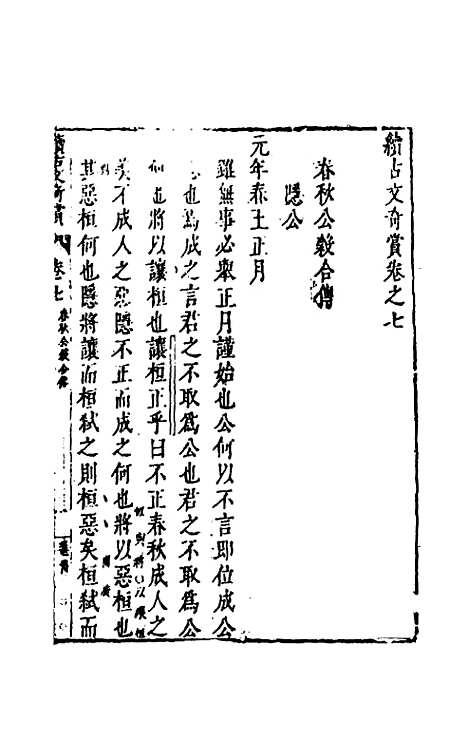 續古文奇賞卷之七
春秋公穀合傳
隱公
元年春王正月
雖無事必舉正月謹始也公何以不言即位成公
志也焉成之言君之不取為公也君之不取為公
何也將以讓桓也讓桓正乎曰不正春秋成人之
美不成人之惡隱不正而成之何也將以惡桓也
其惡桓何也隱將讓而桓弒之則桓惡矣桓弒而
續古文奇賞
卷七
春秋公穀合傳